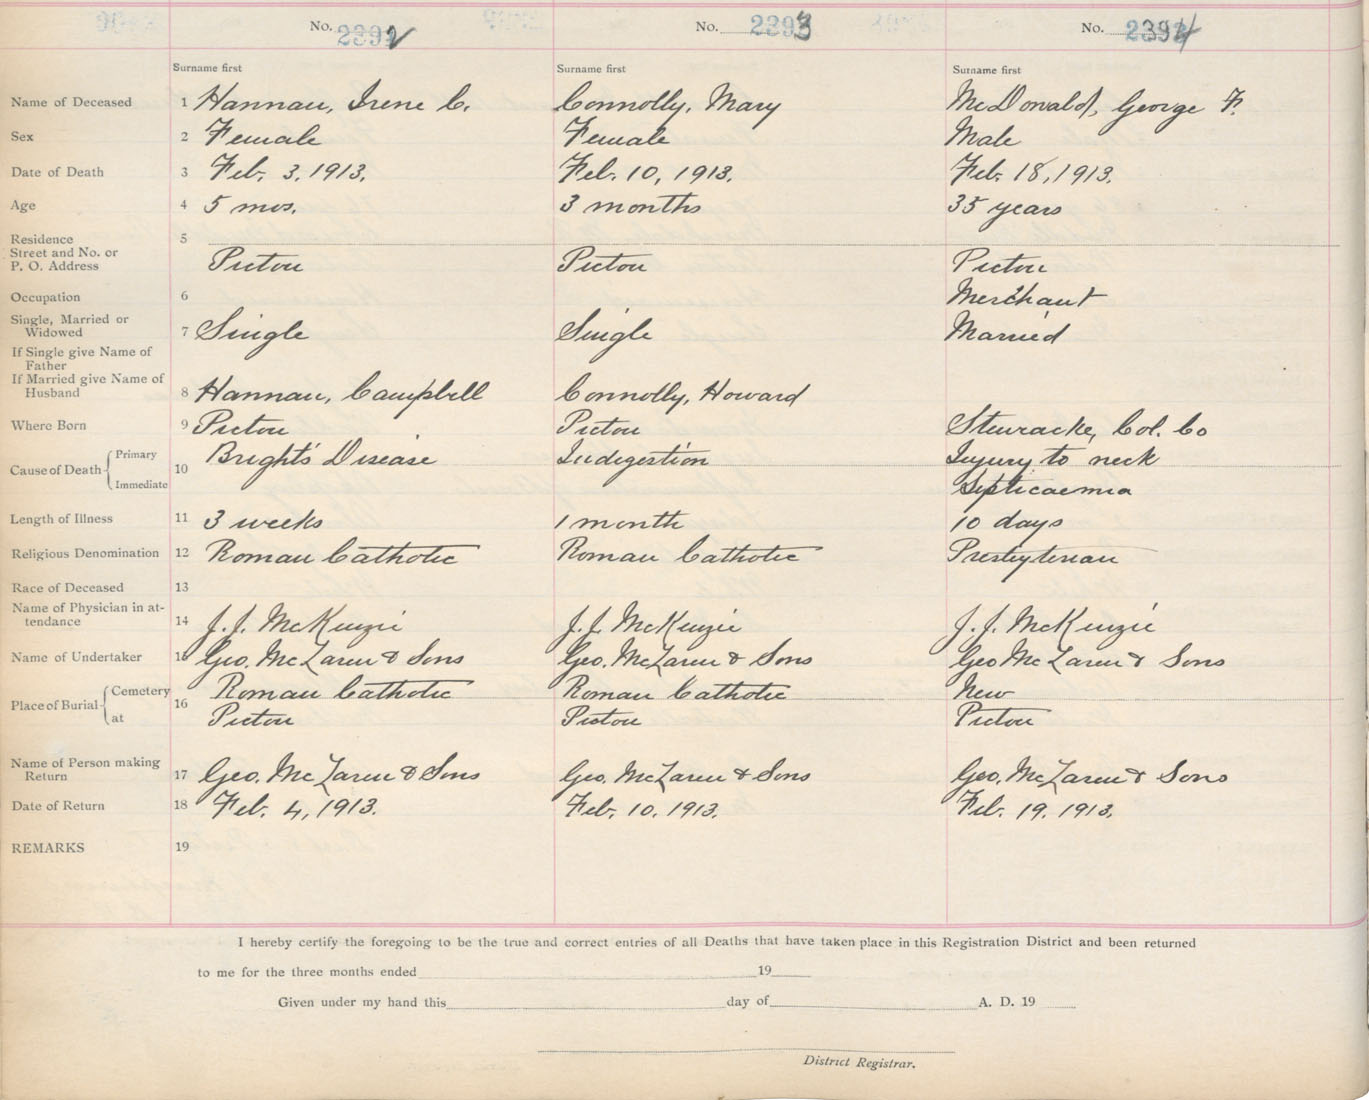 No. 2392 No. 2393 No. 2394
Surname first Surname first Surname first
Name of Deceased 1 Hannan, Irene C. Connolly, Mary McDonald, George F.
Sex 2 Female Female Male
Date of Death 3 Feb. 3, 1913. Feb. 10, 1913. Feb. 18, 1913.
Age 4 5 mos. 3 months 35 years
Residence 5
Street and No. or
P. O. Address Pictou Pictou Pictou
Occupation 6 Merchant
Single, Married or
Widowed 7 Single Single Married
If Single give Name of
Father
If Married give Name of
Husband 8 Hannan, Campbell Connolly, Howard
Where Born 9 Pictou Pictou Col. Co
Cause of Death Primary 10 Bright's Disease Indigestion Injury to neck
Immediate Septicaemia
Length of Illness 11 3 weeks 1 month 10 days
Religious Denomination 12 Roman Catholic Roman Catholic Presbyterian
Race of Deceased 13
Name of Physician in at-
tendance 14 J. J. McKenzie J. J. McKenzie J. J. McKenzie
Name of Undertaker 15 Geo. McLaren & Sons Geo. McLaren & Sons Geo McLaren & Sons
Place of Burial Cemetery 16 Roman Catholic Roman Catholic New
at Pictou Pictou Pictou
Name of Person making
Return 17 Geo. McLaren & Sons Geo. McLaren & Sons Geo. McLaren & Sons
Date of Return 18 Feb. 4, 1913. Feb. 10. 1913. Feb. 19. 1913.
REMARKS 19
I hereby certify the foregoing to be the true and correct entries of all Deaths that have taken place in this Registration District and been returned
to me for the three months ended 19
Given under my hand this day of A. D. 19
District Registrar.